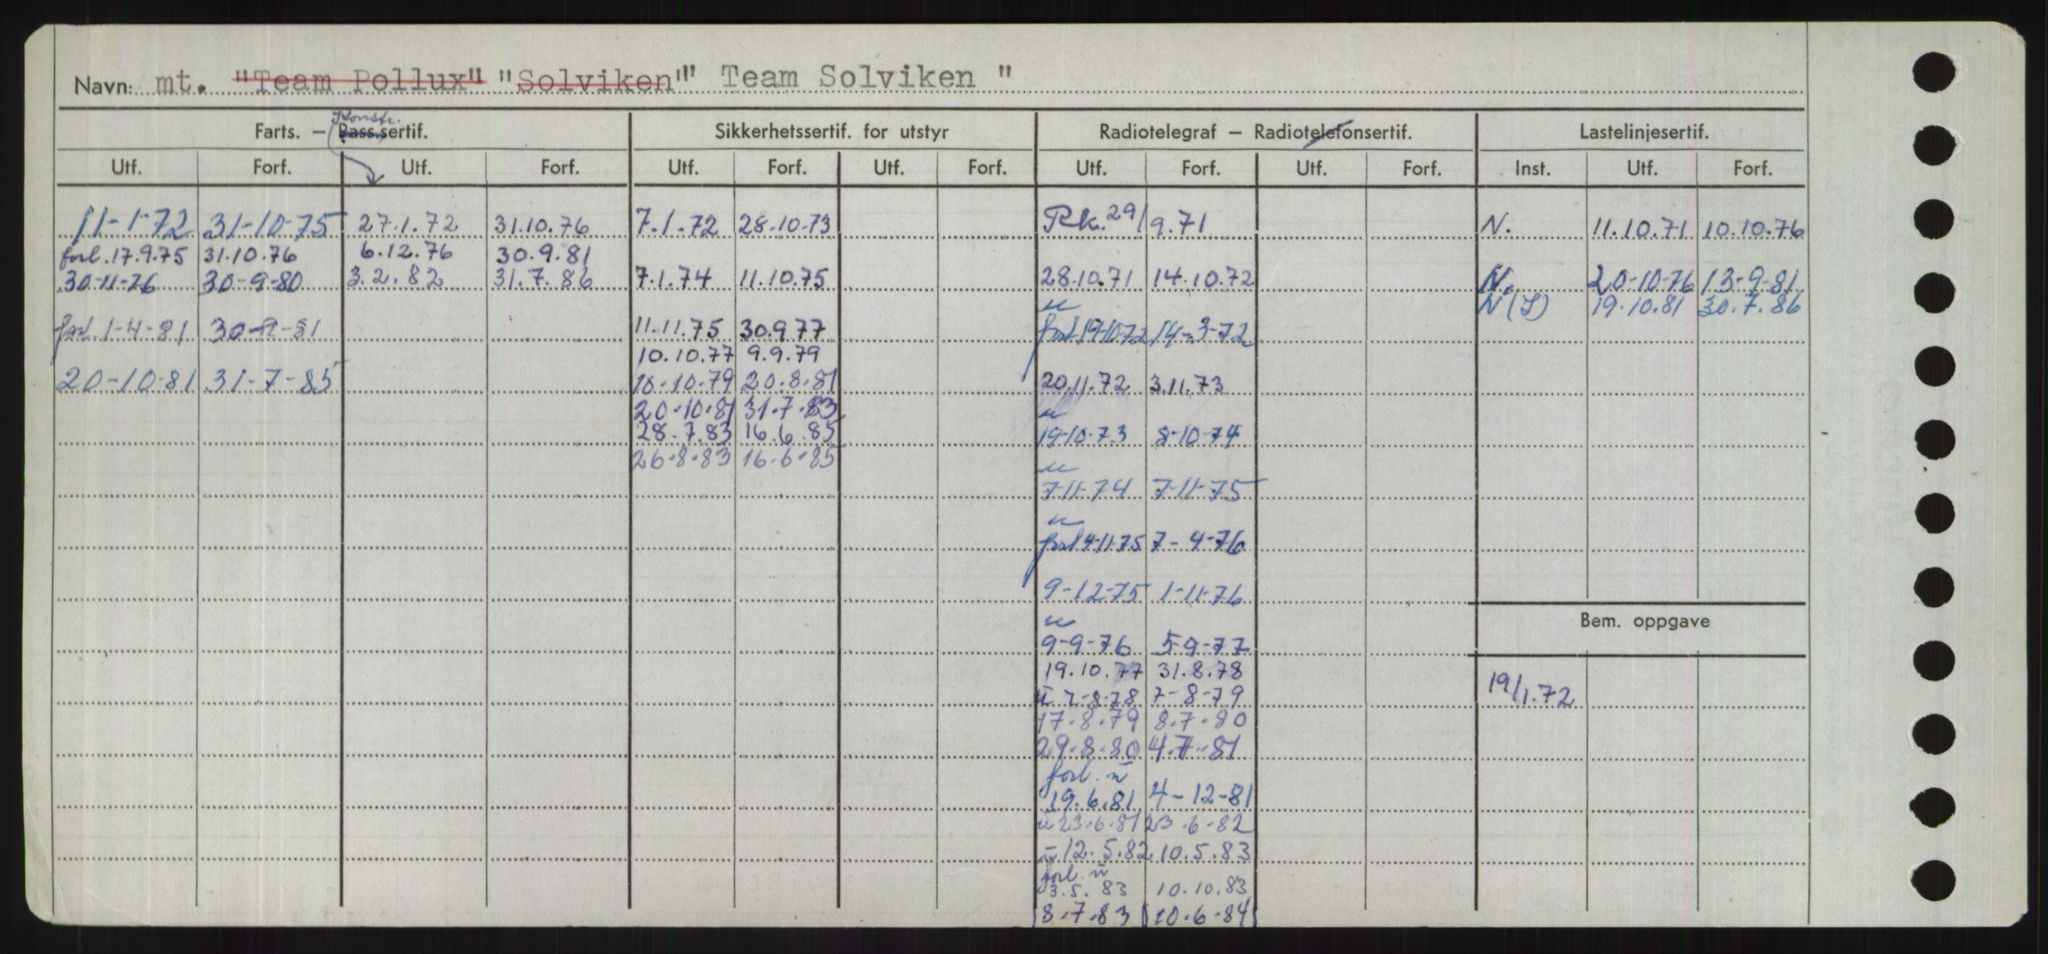 Navn: mt. "Team Pollux" "Solviken" " Team Solviken "
Konstr.
Farts. — Pass.sertif. Sikkerhetssertif. for utstyr Radiotelegraf — Radiotelefonsertif. Lastelinjesertif.
Utf. Forf. Utf. Forf. Utf. Forf. Utf. Forf. Utf. Forf. Utf. Forf. Inst. Utf. Forf.
11-1-72 31-10-75 27.1.72 31.10.76 7.1.72 28.10.73 Rk. 29/9.71 N. 11.10.71 10.10.76
forl. 17.9.75 31.10.76 6.12.76 30.9.81
30-11-76 30-9-80 3.2.82 31.7.86 7.1.74 11.10.75 28.10.71 14.10.72 N. 20-10-76 13-9-81
u N(I) 19.10.81 30.7.86
forl. 1-4-81 30-9-81 11.11.75 30.9.77 forl 19-10-72 14-3-72
10.10.77 9.9.79
20-10-81 31-7-85 18.10.79 20.8.81 20.11.72 3.11.73
20.10.81 31.7.83 u
28.7.83 16.6.85 19-10-73 8-10-74
26.8.83 16.6.85 u
7-11-74 7-11-75
u
forl 4-11-75 7-4-76
9-12-75 1-11-76
u Bem. oppgave
9-9-76 5-9-77
19.10.77 31.8.78
u 7-8-78 7-8-79 19/1.72
17.8.79 8.7.80
29.8.80 4.7.81
forl. u
19.6.81 4-12-81
u 23.6.81 23.6.82
u 12.5.82 10.5.83
forl. u
3.5.83 10.10.83
8.7.83 10.6.84